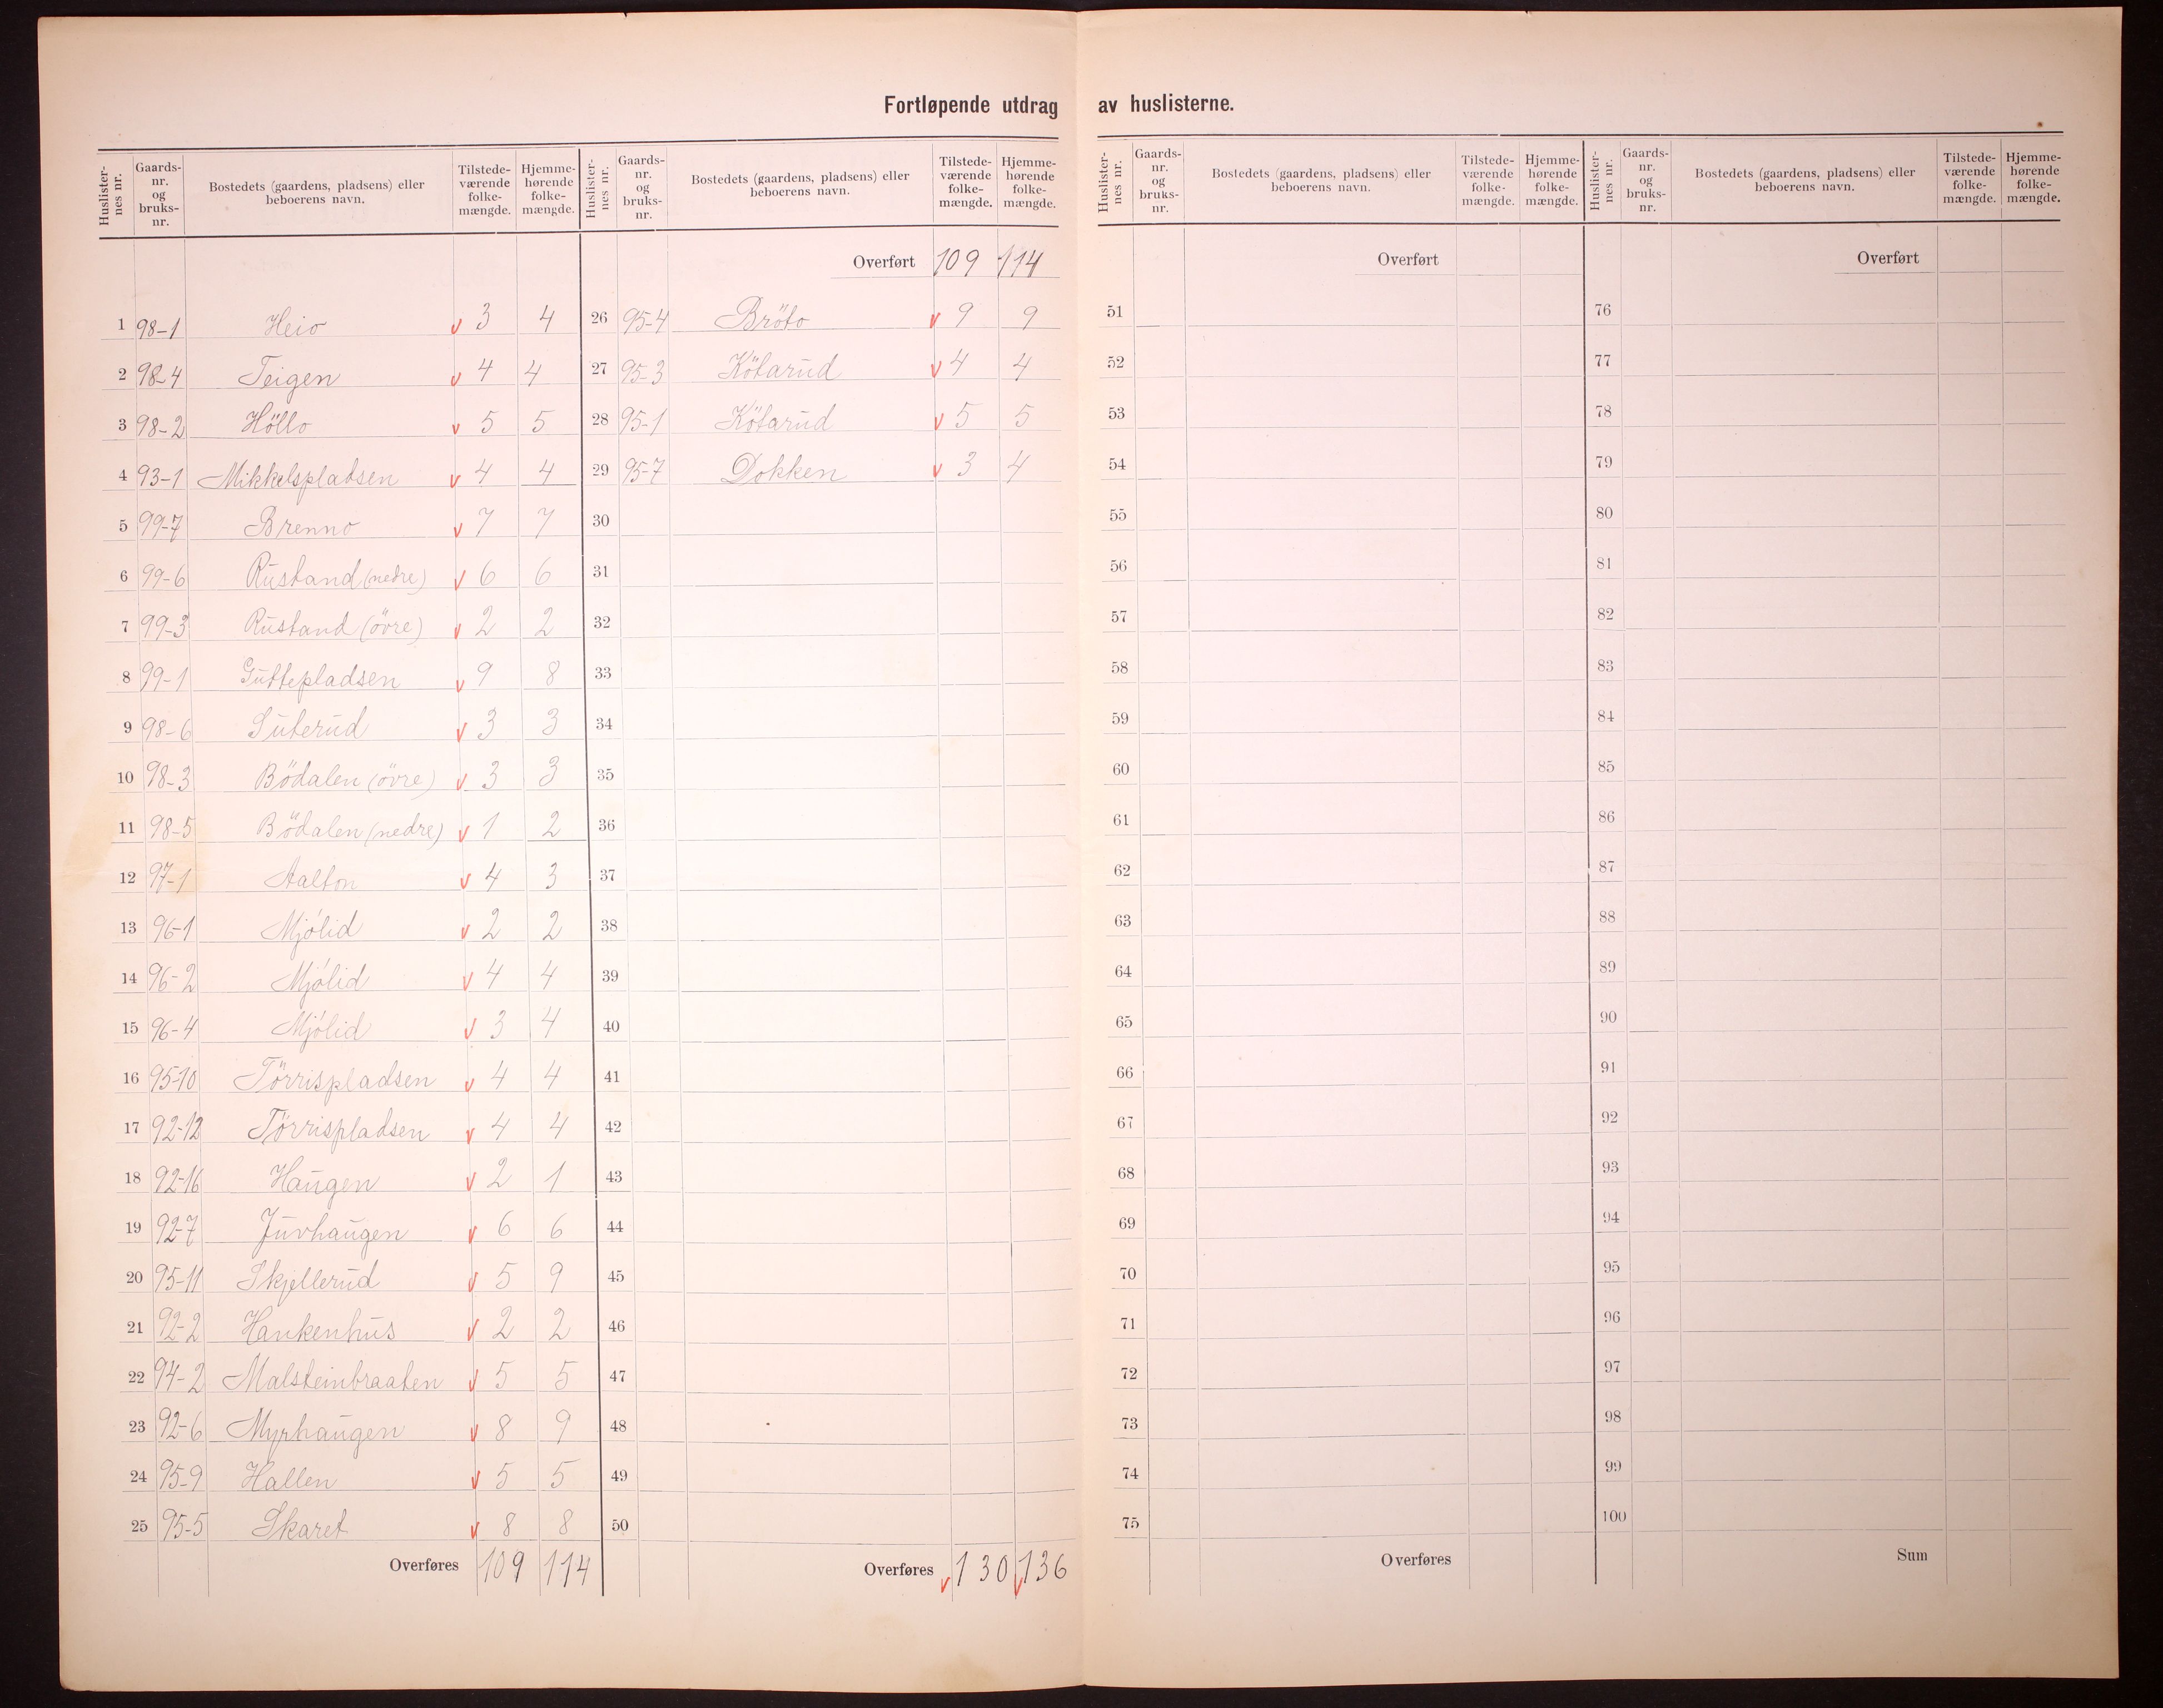 Fortløpende utdrag av huslisterne.
Huslisternes nr. Gaards-nr. og bruks-nr. Bostedets (gaardens, pladsens) eller beboerens navn. Tilstede-værende folke-mængde. Hjemme-hørende folke-mængde.
1 98-1 Heio v 3 4
2 98-4 Teigen v 4 4
3 98-2 Höllo v 5 5
4 93-1 Mikkelspladsen v 4 4
5 99-7 Brenno v 7 7
6 99-6 Rustand (nedre) v 6 6
7 99-3 Rustand (övre) v 2 2
8 99-1 Guttepladsen v 9 8
9 98-6 Suterud v 3 3
10 98-3 Bödalen (övre) v 3 3
11 98-5 Bödalen (nedre) v 1 2
12 97-1 Aalton v 4 3
13 96-1 Mjölid v 2 2
14 96-2 Mjölid v 4 4
15 96-4 Mjölid v 3 4
16 95-10 Törrispladsen v 4 4
17 92-12 Törrispladsen v 4 4
18 92-16 Haugen v 2 1
19 92-7 Juvhaugen v 6 6
20 95-11 Skjellerud v 5 9
21 92-2 Hankenhus v 2 2
22 94-2 Malsteinbraaten v 5 5
23 92-6 Myrhaugen v 8 9
24 95-9 Hallen v 5 5
25 95-5 Skaret v 8 8
Overføres 109 114
Huslisternes nr. Gaards-nr. og bruks-nr. Bostedets (gaardens, pladsens) eller beboerens navn. Tilstede-værende folke-mængde. Hjemme-hørende folke-mængde.
Overført 109 114
26 95-4 Bröto v 9 9
27 95-3 Kötarud v 4 4
28 95-1 Kötarud v 5 5
29 95-7 Dokken v 3 4
30
31
32
33
34
35
36
37
38
39
40
41
42
43
44
45
46
47
48
49
50
Overføres v 130 v 136
Huslisternes nr. Gaards-nr. og bruks-nr. Bostedets (gaardens, pladsens) eller beboerens navn. Tilstede-værende folke-mængde. Hjemme-hørende folke-mængde.
Overført
51
52
53
54
55
56
57
58
59
60
61
62
63
64
65
66
67
68
69
70
71
72
73
74
75
Overføres
Huslisternes nr. Gaards-nr. og bruks-nr. Bostedets (gaardens, pladsens) eller beboerens navn. Tilstede-værende folke-mængde. Hjemme-hørende folke-mængde.
Overført
76
77
78
79
80
81
82
83
84
85
86
87
88
89
90
91
92
93
94
95
96
97
98
99
100
Sum